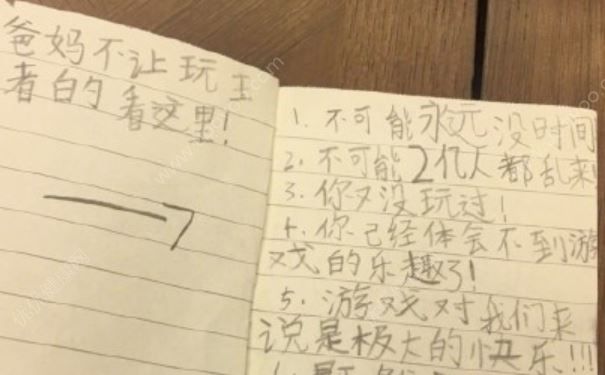 爸妈不让玩王
者白的看这里!
1. 不可能永元没时间
2. 不可能2亿人都乱来!
3. 你又没玩过!
4. 你已经体会不到游
戏的乐趣了!
5. 游戏对我们来
说是极大的快乐!!!